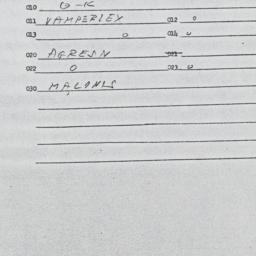 010 O-K
011 VAMPERLEY 012 0
013 0 014 0
020 AGRESN 021
022 0 023 0
030